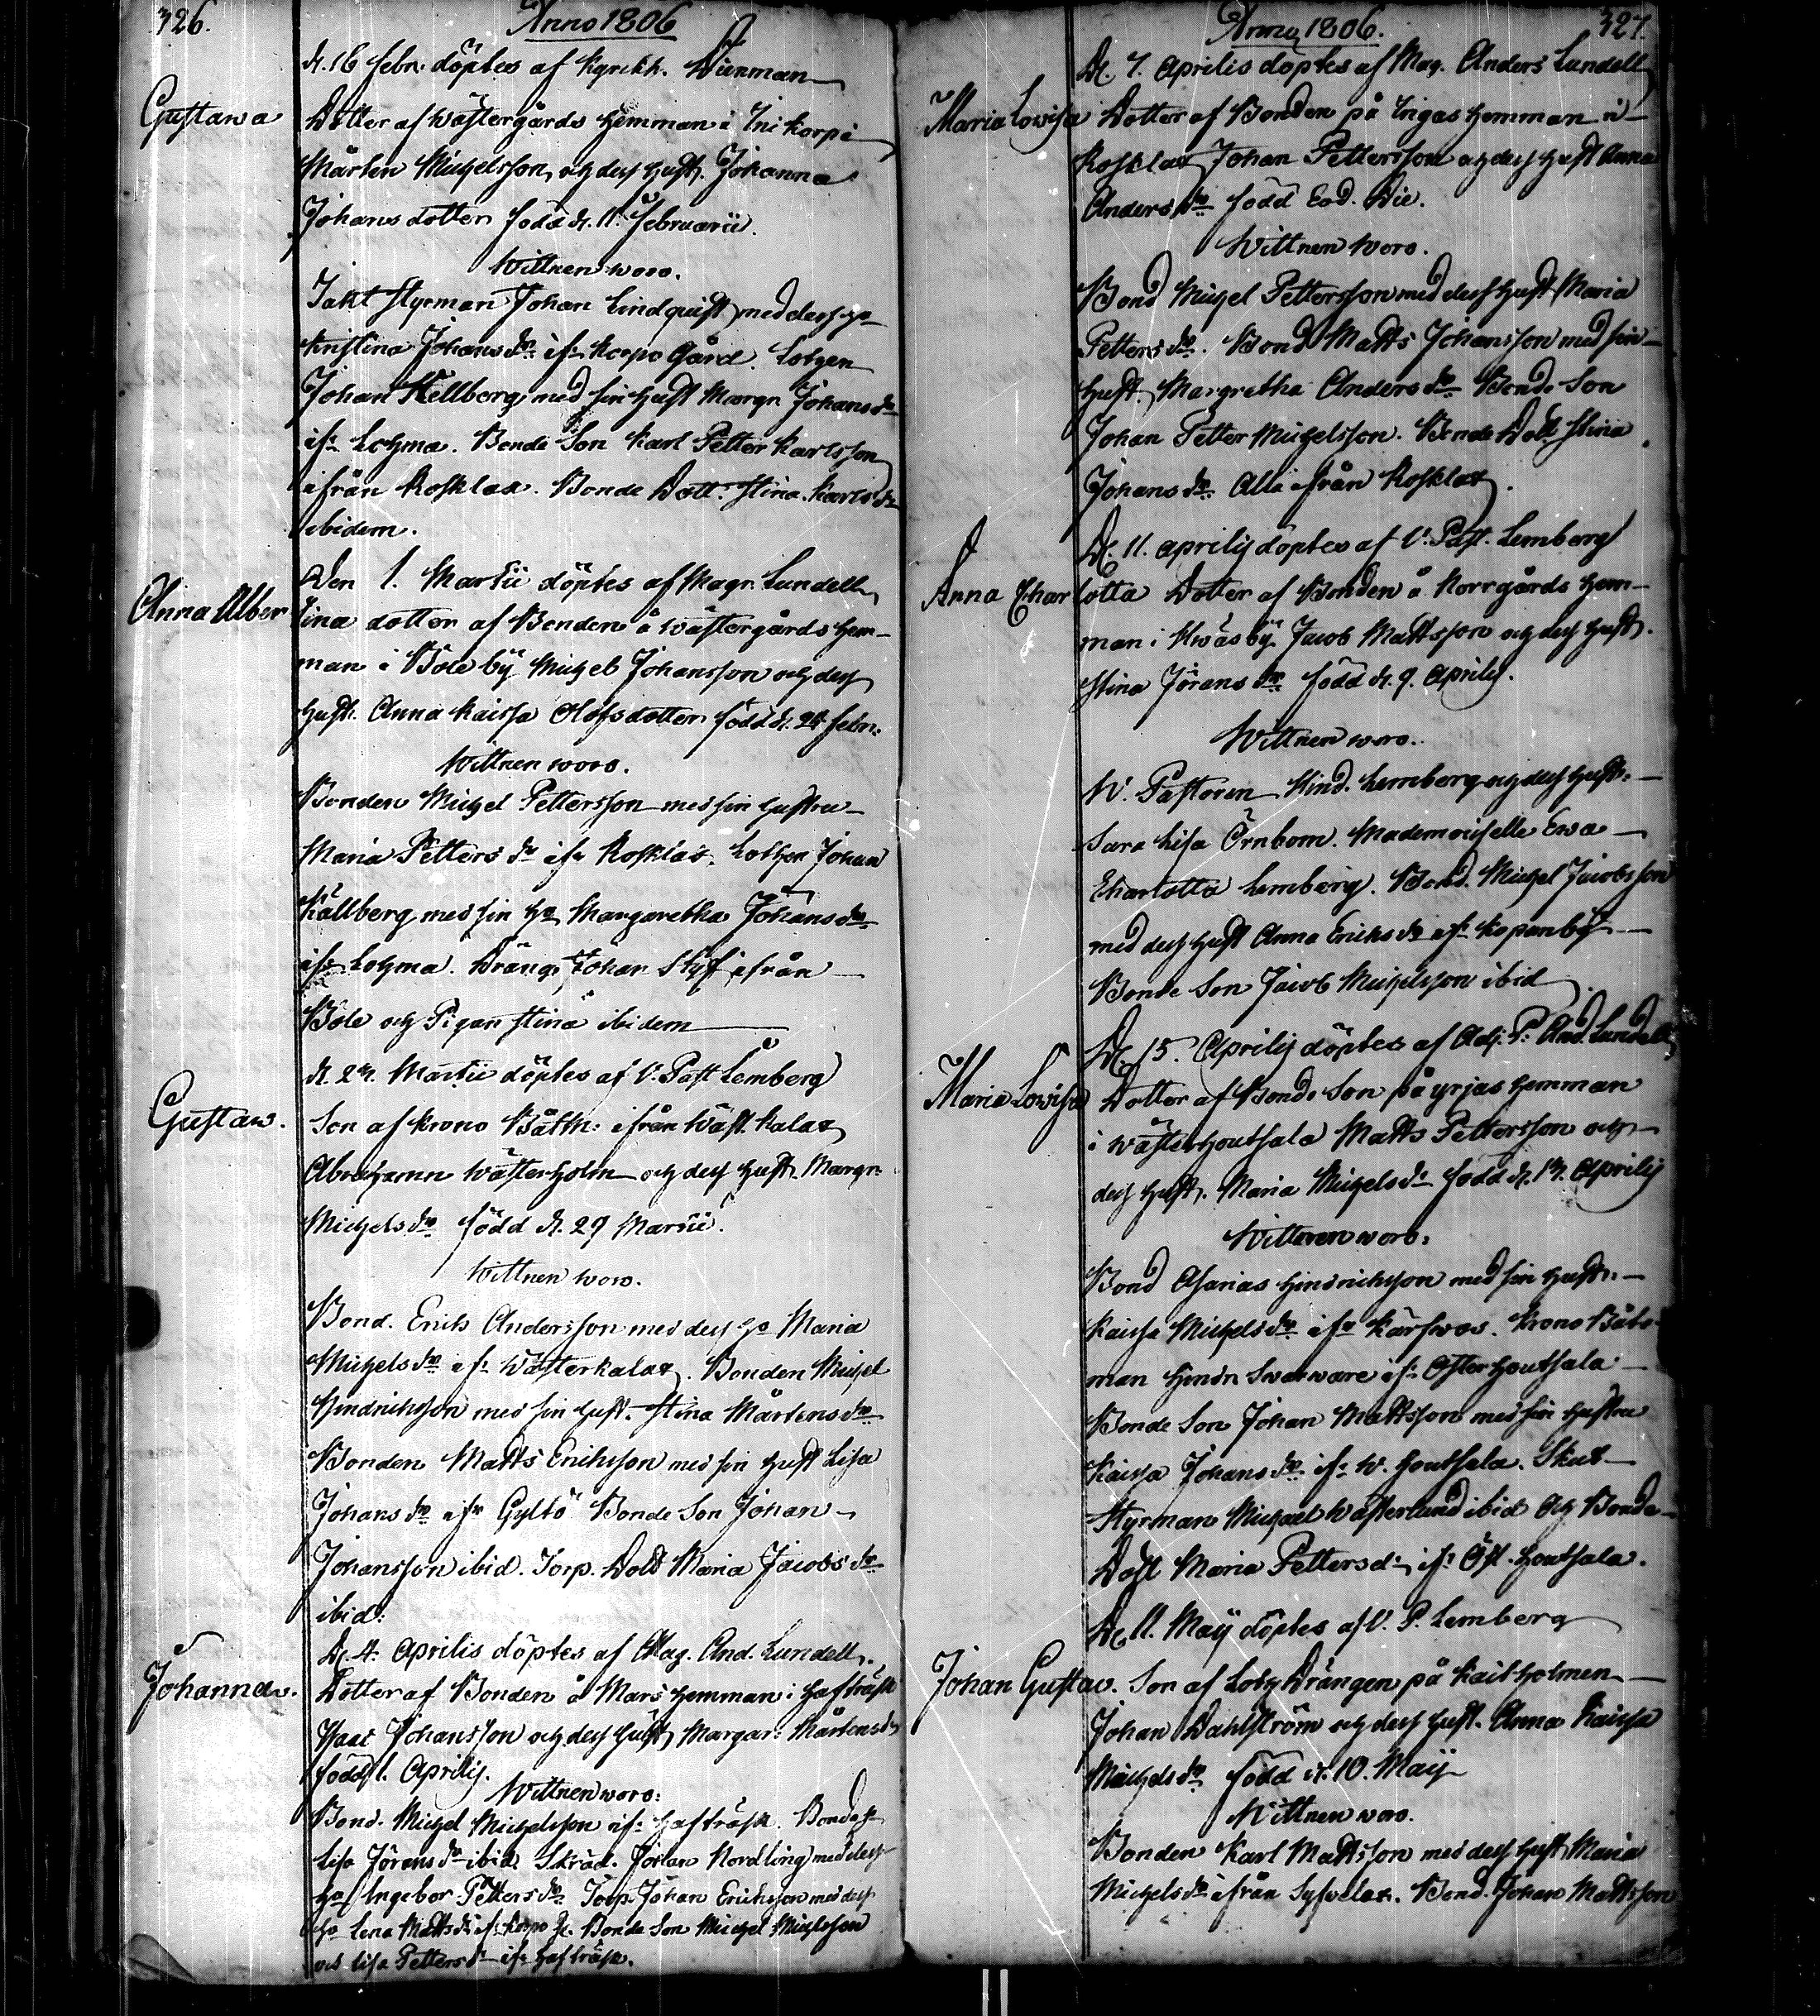 326.
Anno 1806
d. 16 febr. döptes af
Gustawa
Dotter af wästergårds Hemman i
Mårten Michelsson, och dess hust. Johanna
Johans dotter född d. 11. Februarii.
Wittnen woro.
Jakt Styrman Johan Lindquist med dess h:o
Kristina Johans dr ifr. Korpo Gård. Lotzen
Johan Kellberg med sin hust Margr Johans dr
ifr. Lohma. Bonde Son Karl Petter Karlsson
ifrån Rosklax. Bonde Dott. Stina Karls dr
ibidem.
Den 1. Martii döptes af Magr. Lundell
Anna Alber
tina dotter af Bonden å wästergårds Hem-
man i Böle bÿ Michel Johansson och dess
hust. Anna Kaissa Olofsdotter född d. 24 febr.
Wittnen woro.
Bonden Michel Pettersson med sin hustru
Maria Petters dr ifr Rosklax. Lotzen Johan
Källberg med sin h:o Margaretha Johans dr
ifr Lohma. Dräng. Johan Styf ifrån
Böle och Pigan Stina ibidem
Martii döptes af V. Past Lemberg
Gustaw.
Son af Krono Båtsm: ifrån Wäst. Kalax
Abrahamn Wästerholm och dess hust. Margr.
Michels dr född d. 29 Martii.
Wittnen woro.
Bond. Erich Andersson med dess h:o Maria
Michels dr ifr. Wästerkalax. Bonden Michel
Hindrichsson med sin hust. Stina Mårtens dr
Bonden Matts Erichsson med sin hust Lisa
Johans dr ifr Gyltö Bonde Son Johan
Johansson ibid. Torp. Dott Maria Jacobs dr
ibid:
D. 4. Aprilis döptes af Mag. And. Lundell.
Johanna.
Dotter af Bonden å Mars Hemman i Hafträsk
Isaac Johansson och dess hust. Margar: Mårtens dr
född 1. Aprilij.
Wittnen woro:
Bond. Michel Michelsson ifr. Hafträsk. Bonde
Lisa Jörans dr ibid. Skräd. Johan Nordling med dess
h:o Ingebor Petters dr. Torp. Johan Erichsson med dess
h:o Lena Matts dr ifr. Korpo Bonde Son Michel Michelsson
och Lisa Petters dr ifr Hafträsk.
327.
Anno 1806.
D. 7. Aprilis döptes af Mag. Anders Lundell
Maria Lowisa
Dotter af Bonden på Ingas Hemman i
Rosklax Johan Pettersson och dess hust Anna
Anders dr född Eod. Die.
Wittnen woro.
Bond Michel Pettersson med dess hust Maria
Petters dr. Bond Matts Johansson med sin
hust. Margretha Anders dr Bonde Son
Johan Petter Michelsson. Bonde Dott Stina
Johans dr. Alla ifrån Rosklax.
D. 11. Aprilij döptes af V. Past. Lemberg
Anna Char
lotta Dotter af Bonden å Norrgårds Hem-
man i Jacob Mattsson och dess hust.
Stina Jörans dr född d. 9. Aprilij.
Wittnen woro.
W. Pastoren Hind. Lemberg och dess hust.
Sara Lisa Örnbom. Mademoiselle Ewa
Charlotta Lemberg. Bond. Michel Jacobsson
med dess hust Anna Erichs dr ifr
Bonde Son Jacob Michelsson ibid
D. 15. Aprilij döptes af Adj. P. And. Lundell
Maria Lowisa
Dotter af Bonde Son på yrjas Hemman
i Wästerhoutsala Matts Pettersson och
dess hust. Maria Michels dr född d. Aprilij
Wittnen woro:
Bond Asarias Hindrichsson med sin hust.
Kaissa Michels dr ifr Kärfwas. Krono Båts-
man Hindr ifr. Österhoutsala
Bonde Son Johan Mattsson med sin hustru
Kaissa Johans dr ifr. W. Houtsala. Skut-
Styrman Michael Wästerlund ibid och Bonde
Dott Maria Petters d: ifr. Öst. Houtsala.
D. 11. Maÿ döptes af V. P. Lemberg
Johan Gustav.
Son af Lotz Drängen på Kaitholmen
Johan Dahlström och dess hust. Anna Kaissa
Michels dr född d. 10. Maÿ
Wittnen woro.
Bonden Karl Mattsson med dess hust. Maria
Michels dr ifrån Syfwelax. Bond. Johan Mattsson